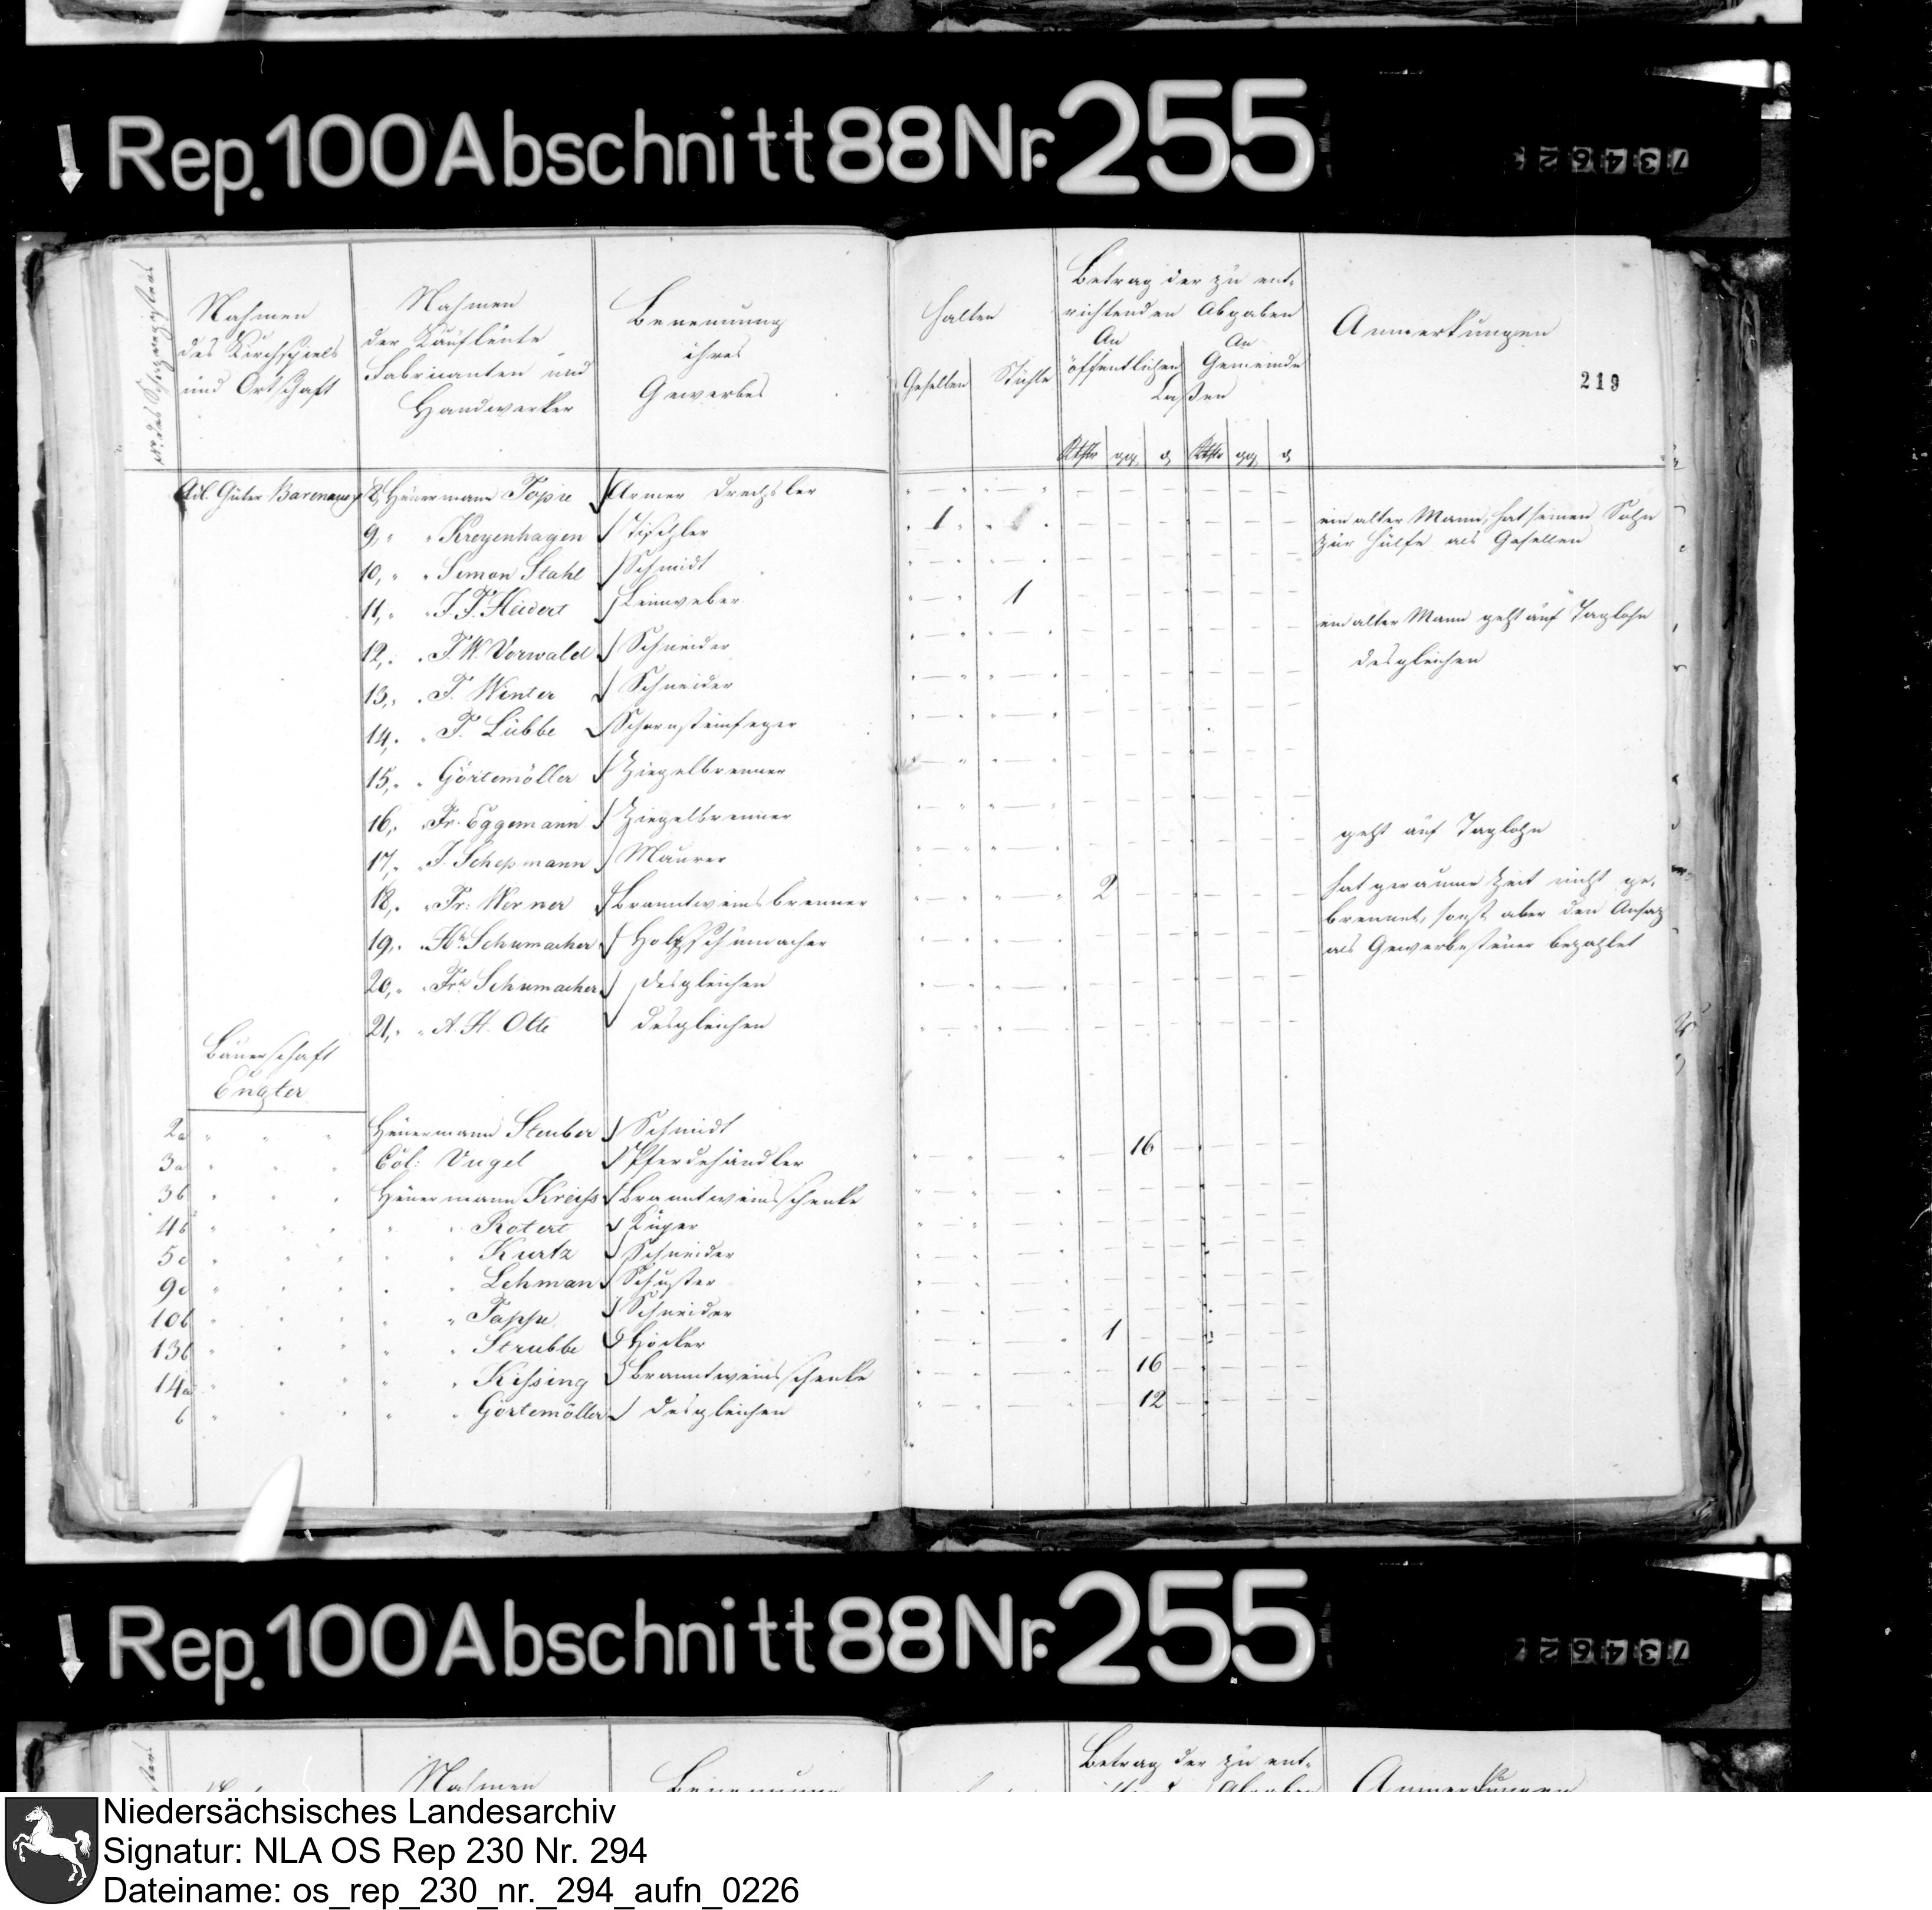 Rep. 100 Abschnitt 88 Nr. 255
73462
Nr. des Schatzregisters
Nahmen
des Kirchspiels
und Ortschaft
Nahmen
der Kaufleute
Fabricanten und
Handwerker
Benennung
ihres
Gewerbes
Halten
Gesellen Stühle
Betrag der zu ent-
richtenden Abgaben
An öffentlichen An Gemeinde
Caßen
Rthlr ggr d Rthlr ggr d
Anmerkungen
219
Adl. Güter Barenaue 8, Heuermann Topie Armer Drechsler
9, " " Kreyenhagen Tischler 1 ein alter Mann, hat seinen Sohn
zur Hülfe als Gesellen
10, " " Simon Stahl Schmidt
11, " " J. F. Heidert Leinweber 1
12, " " F. W. Vorwald Schneider ein alter Mann geht auf Taglohn
13, " " F. Winter Schneider desgleichen
14, " " F. Lübbe Schornsteinfeger
15, " " Görtemöller Ziegelbrenner
16, " " Fr. Eggemann Ziegelbrenner
17, " " J. Schepmann Maurer geht auf Taglohn
18, " " Fr: Werner Branntweinsbrenner 2 hat geraume Zeit nicht ge-
brennet, sonst aber den Ansaz
als Gewerbesteuer bezahlet
19, " " Hr. Schumacher Holzschumacher
20, " " Frd. Schumacher desgleichen
21, " " A. H. Otte desgleichen
Bauerschaft
Engter
2a " " " Heuermann Steuber Schmidt
3a " " " Col: Vugel Pferdehändler 16
3b " " " Heuermann Kreiss Branntweinsschenke
4b " " " " " Rotert Küper
5c " " " " " Kurtz Schneider
9c " " " " " Lehman Schuster
10b " " " " " Tappe Schneider
13b " " " " " Strubbe Höcker 1
14a " " " " " Kissing Branntweinsschenke 16
b " " " " " Görtemöller desgleichen 12
Rep. 100 Abschnitt 88 Nr. 255
73462
Nahmen
Benennung
Betrag der zu ent-
Anmerkungen
Niedersächsisches Landesarchiv
Signatur: NLA OS Rep 230 Nr. 294
Dateiname: os_rep_230_nr._294_aufn_0226